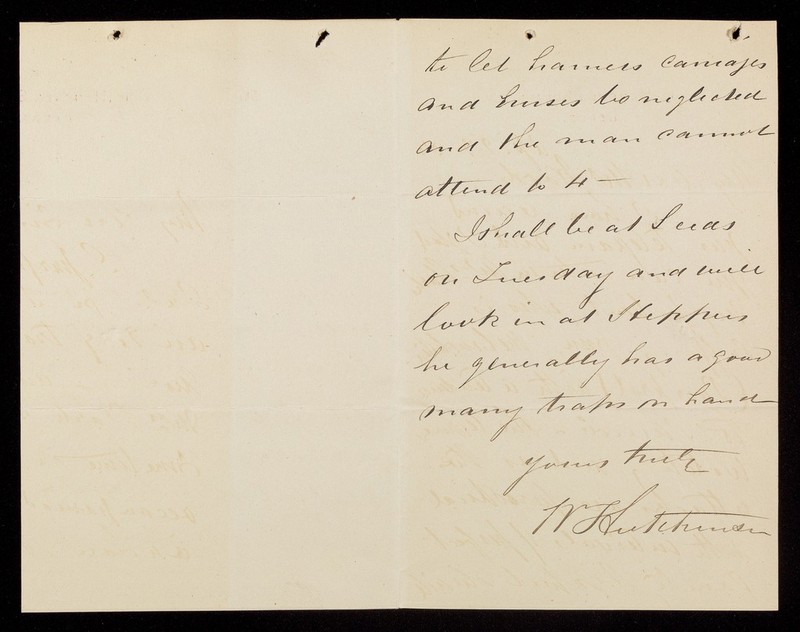 to let harness carriages
and horses be neglected
and the man cannot
attend to 4 —
I shall be at Leeds
on Tuesday and will
look in at Steppers
he generally has a good
many traps on hand
yours truly
W Hutchinson